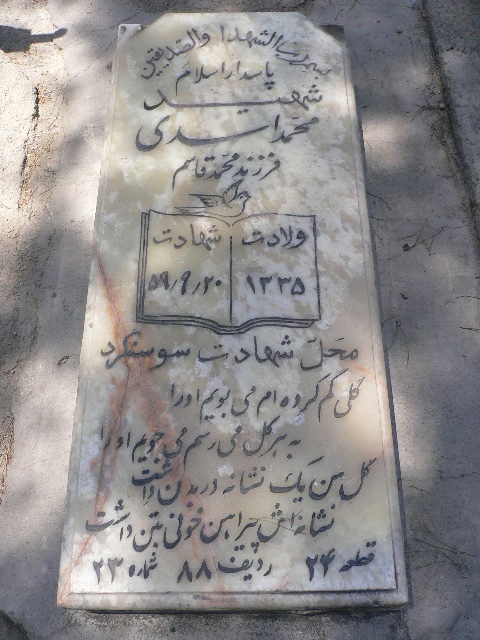 بسم رب الشهدا والصدیقین
پاسدار اسلام
شهید
محمد اسدی
فرزند محمد قاسم
ولادت شهادت
۱۳۳۵ ۵۹/۹/۲۰
محل شهادت سوسنگرد
گلی گم کرده ام می بویم او را
به هر گل می رسم می جویم او را
گل من یک نشانه در بدن داشت
نشانه اش پیراهن خونی بتن داشت
قطعه ۲۴ ردیف ۸۸ شماره ۲۳